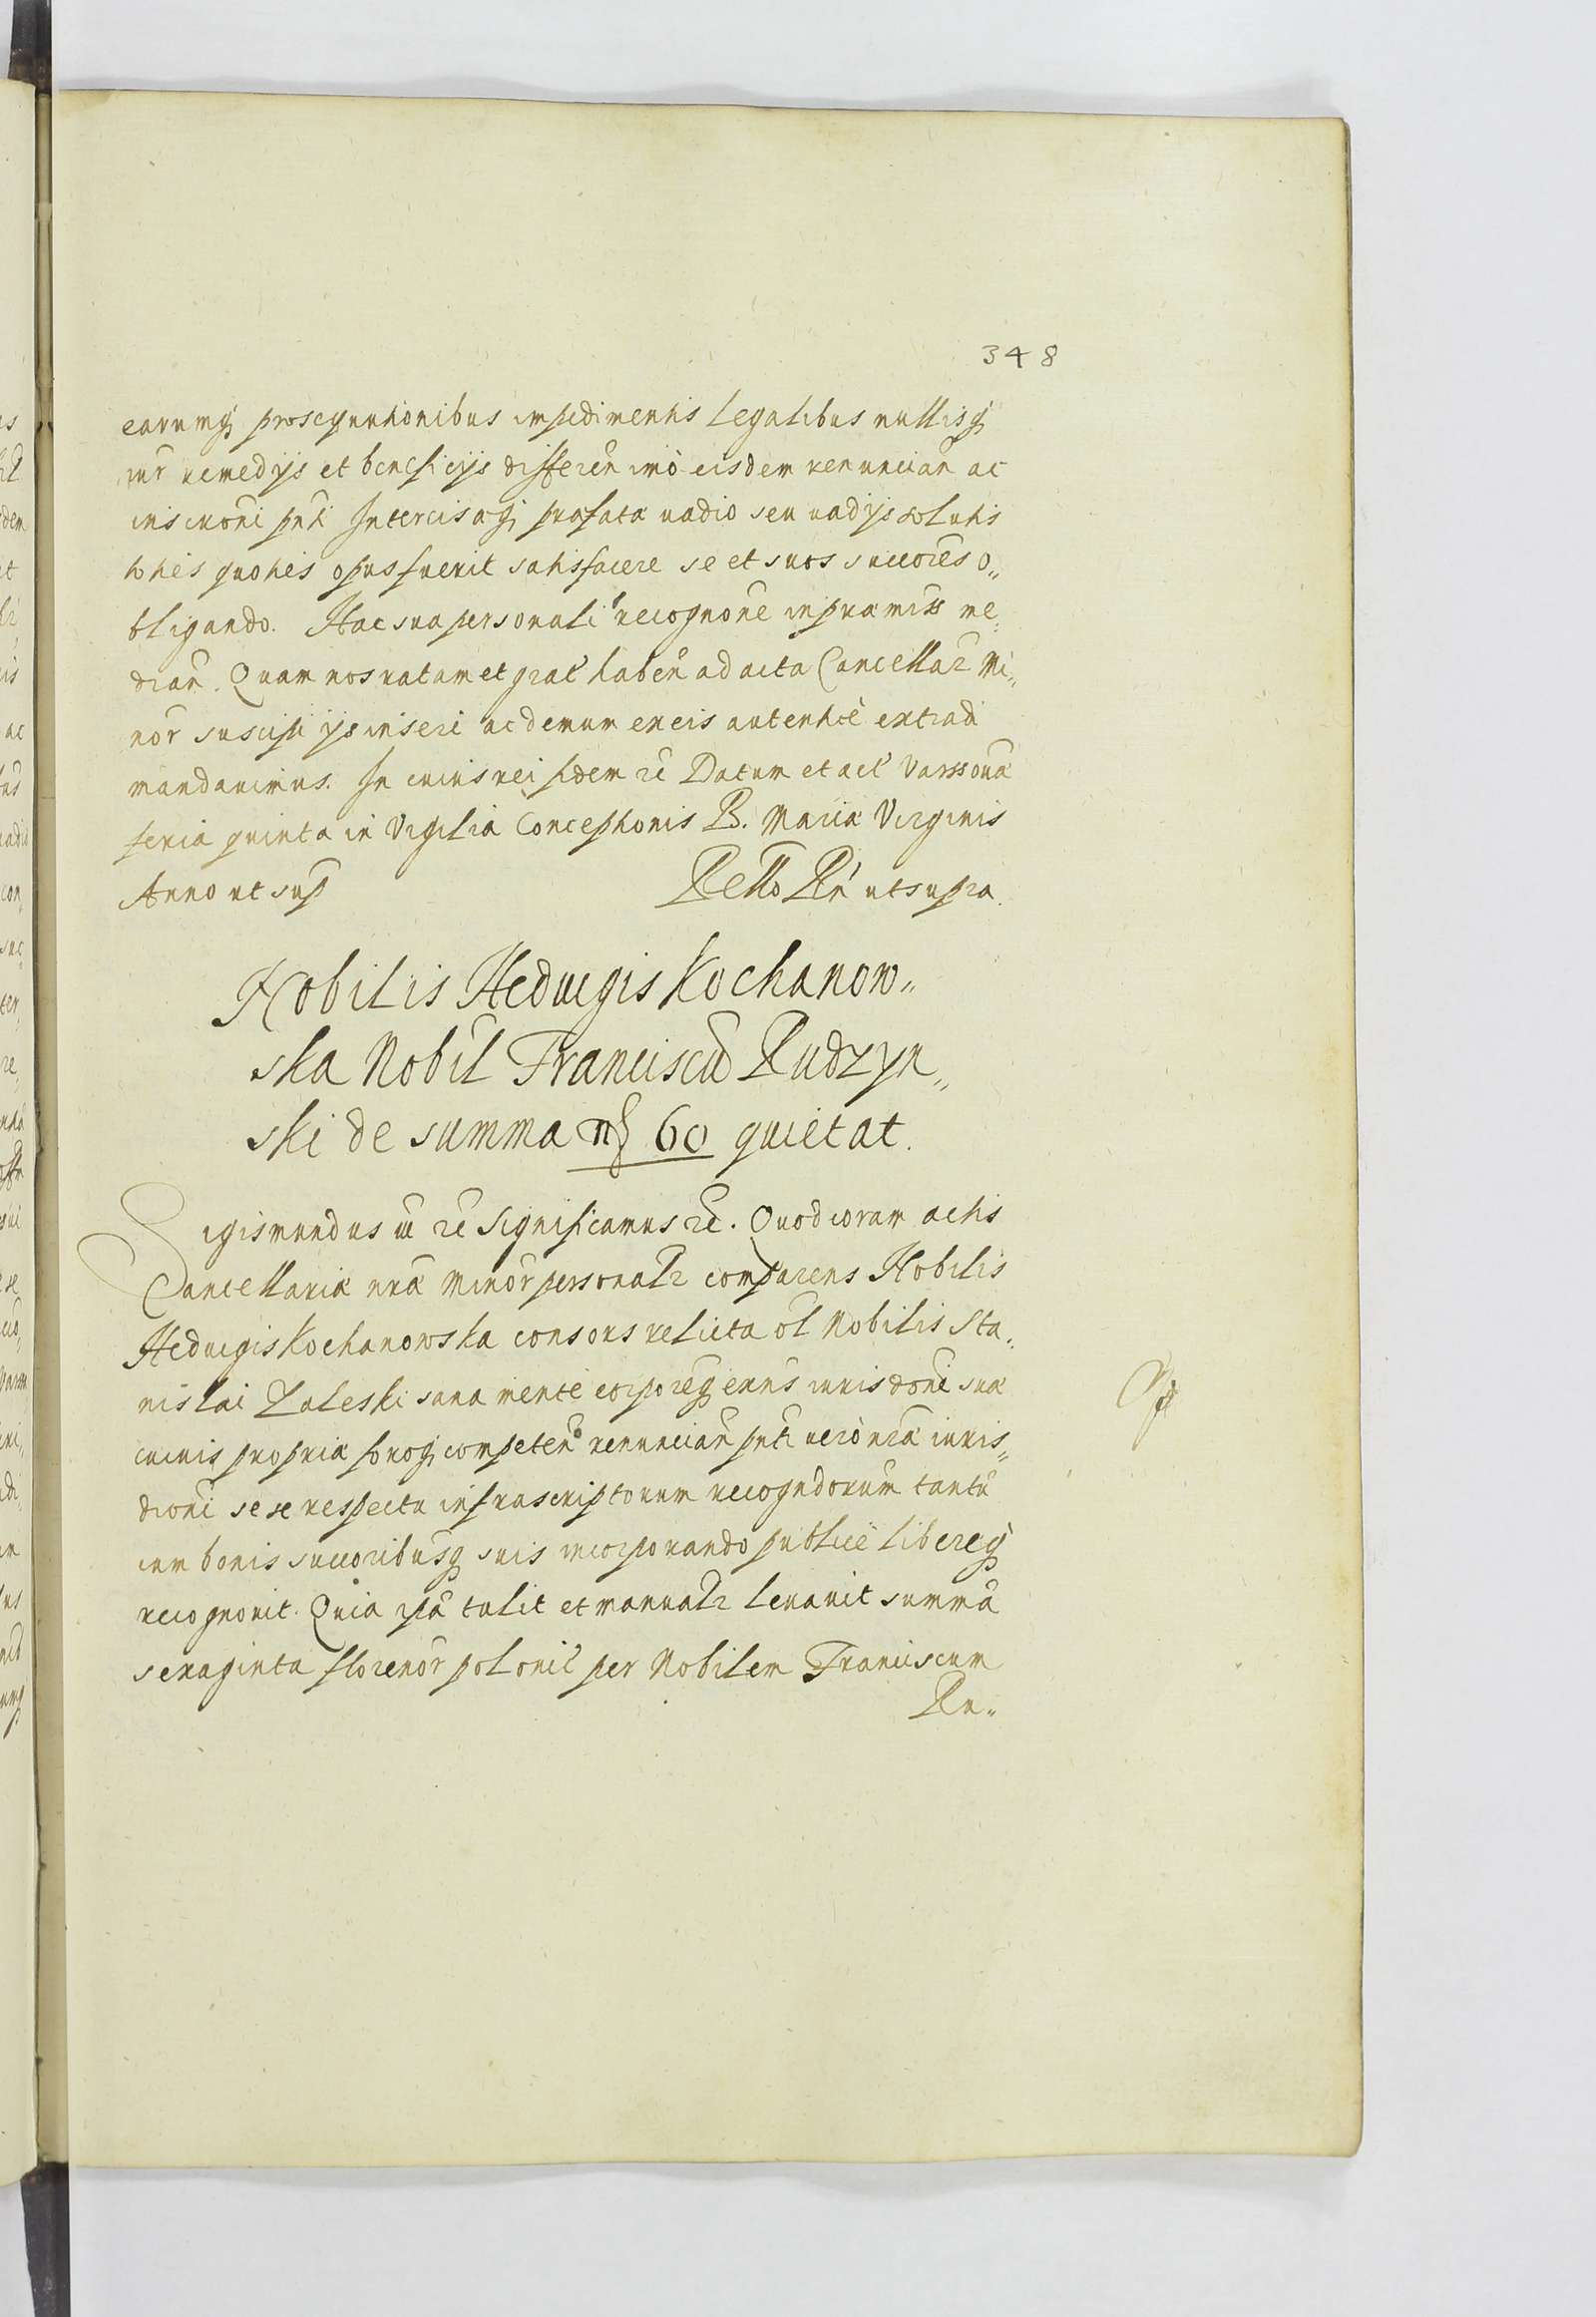 348
earumq; prosequutionibus impedimentis Legalibus nullisq;
iur remedijs et beneficijs differen imò eisdem renuncian ac
inscriõni pñti Intercisaq; præfatæ vadio seu vadijs solutis
toties quoties opus fuerit satisfacere se et suos succores o„
bligando. Hac sua personali recognone in præmiss me„
dian. Quam nos ratam et grat haben ad acta Cancellar Mi„
nor suscipi ijs inseri ac demum ex eis autenticè extradi
mandavimus. In cuius rei fidem &c Datum et act Varssoviæ
feria quinta in Vigilia Conceptionis B. Mariæ Virginis
Anno ut sup Rello Rn ut supra.
Nobilis Heduigis Kochanow„
ska Nobil Franciscũ Rudzyn„
ski de summa 60 quietat.
Sigismundus &c Significamus &c. Quod coram actis
Cancellariæ nræ Minor personalr comparens Nobilis
Heduigis Kochanowska consors relicta ol Nobilis Sta„
nislai Zaleski sana mente corporeq; exns iurisdoni suæ
cuiuis propriæ foroq; competen renuncian pnti verò nræ iuris„
dioni sese respectu infrascriptorum recogndorum tantũ
cum bonis succoribusq; suis incorporando publicè libereq;
recognovit. Quia ipa tulit et manualr levavit summã
sexaginta florenor polonic per Nobilem Franciscum
Ru„